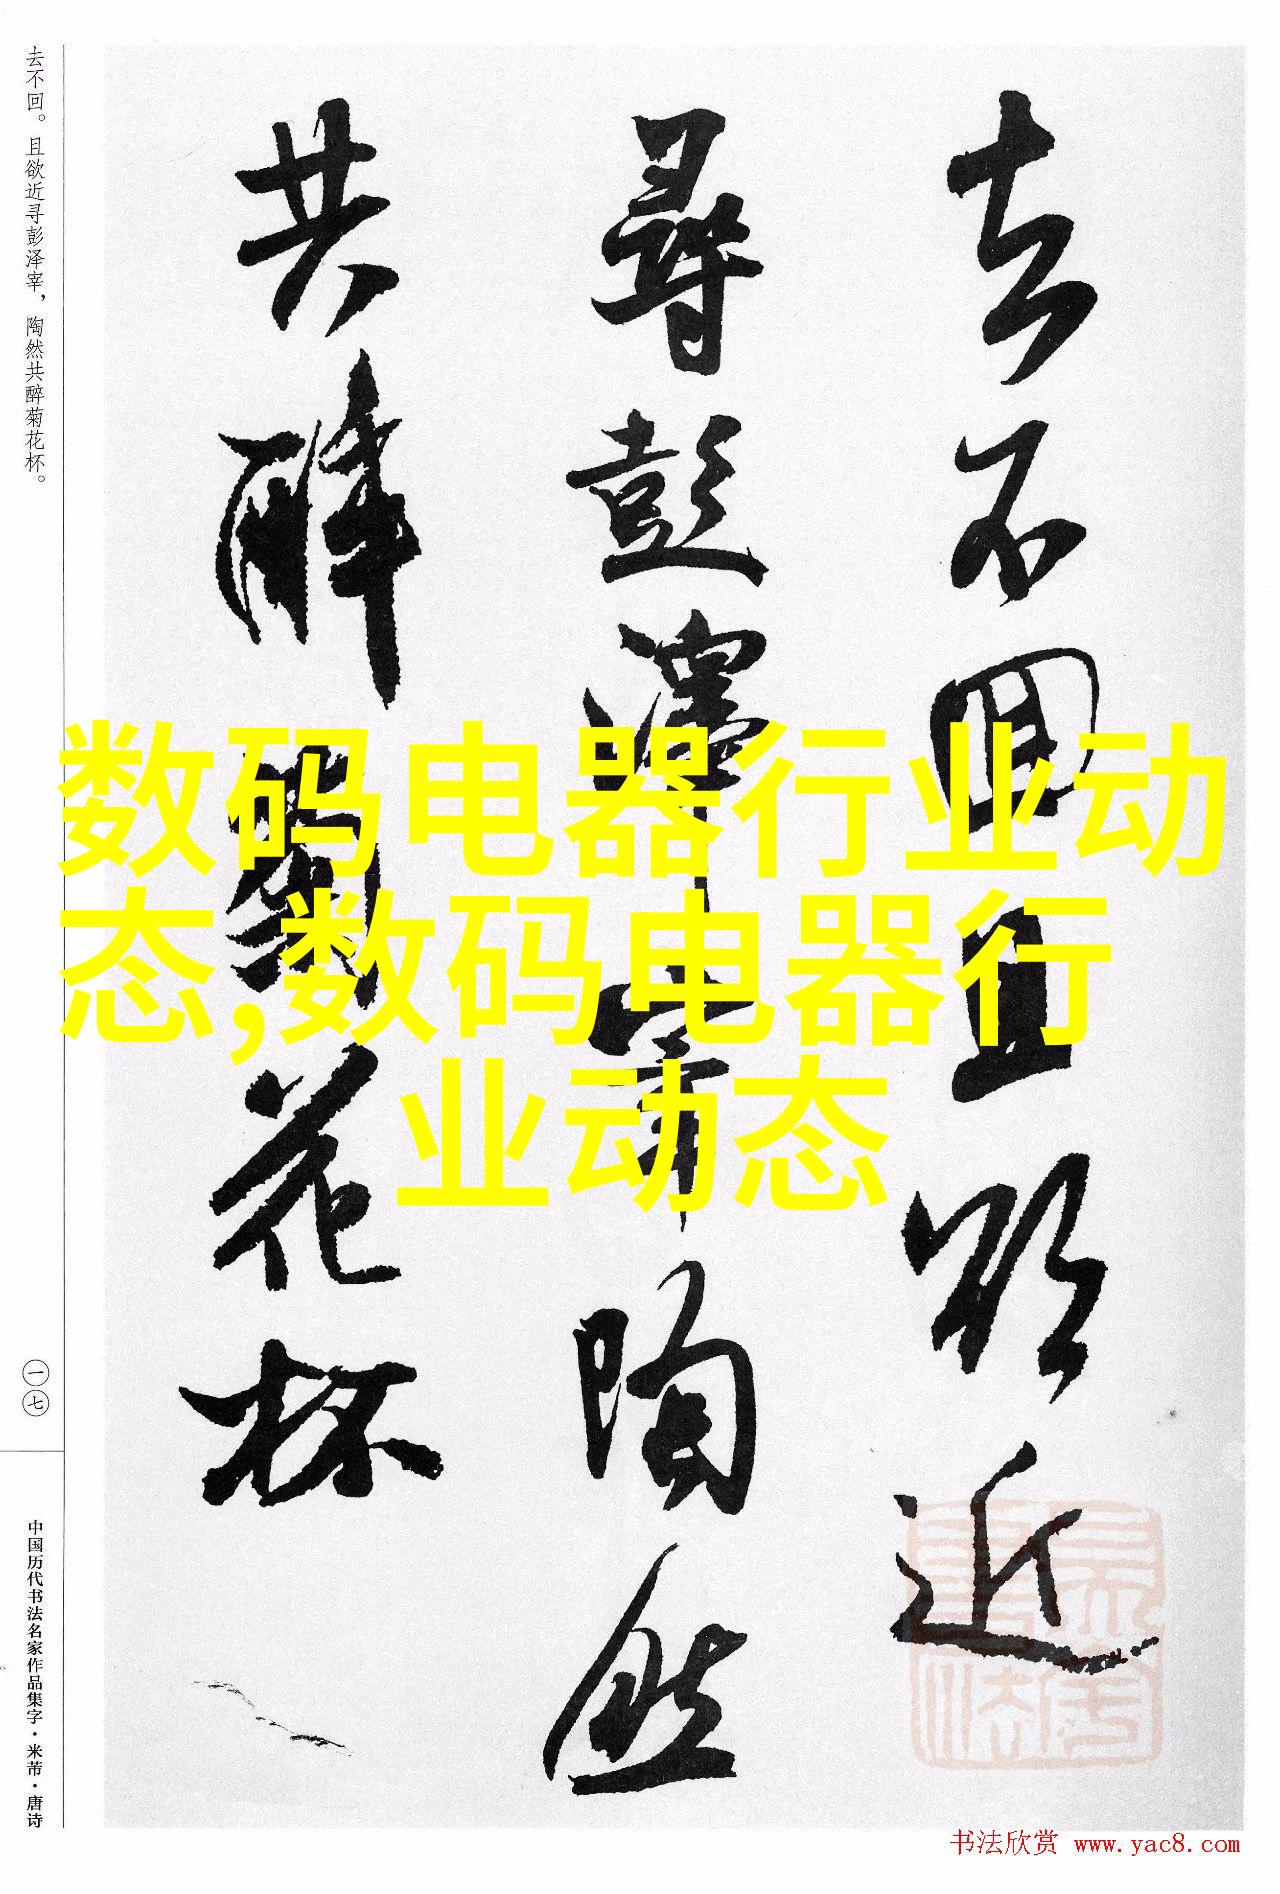 去不回且欲近
寻彭泽宰陶然
共醉菊花杯
去不回。且欲近寻彭泽宰，陶然共醉菊花杯。
一七
中国历代书法名家作品集字·米芾·唐诗
数码电器行业动
态,数码电器行
业动态
书法欣赏 www.yac8.com